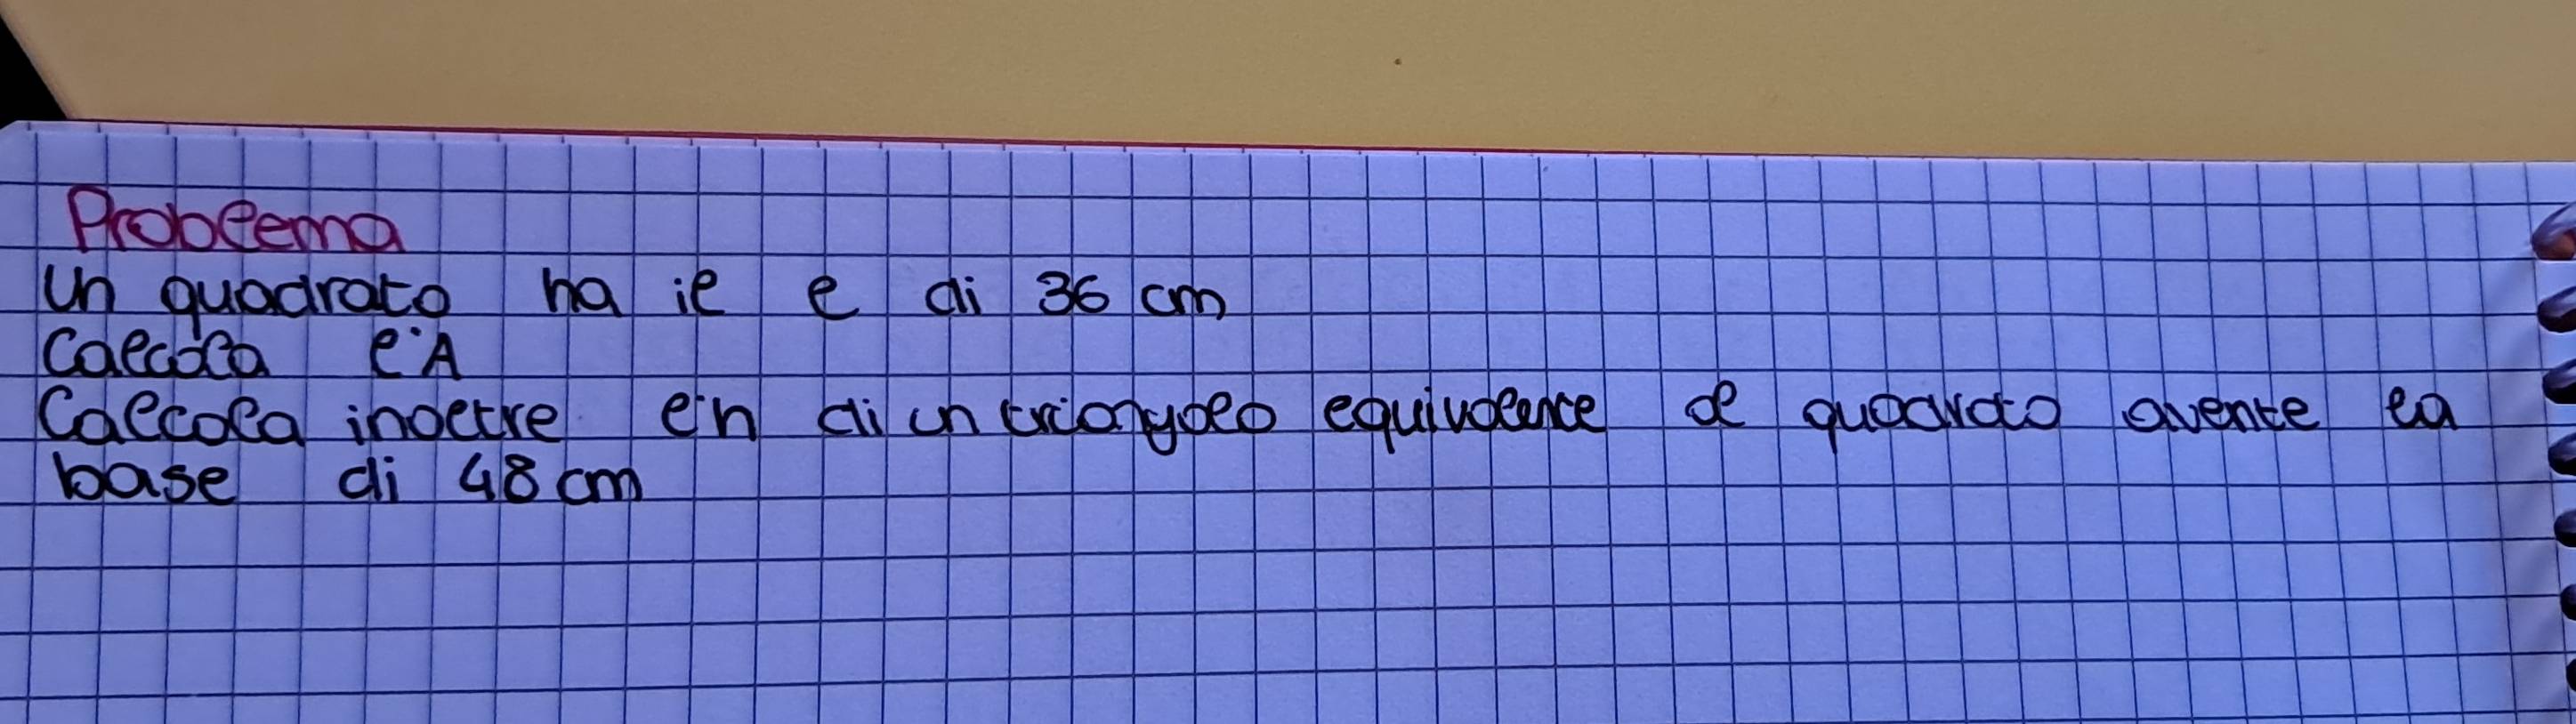 Problema
Un quadrato ha il l di 36 cm
Calcola l'A
Calcola inoltre l'h di un triangolo equivalente al quadrato avente la
base di 48 cm